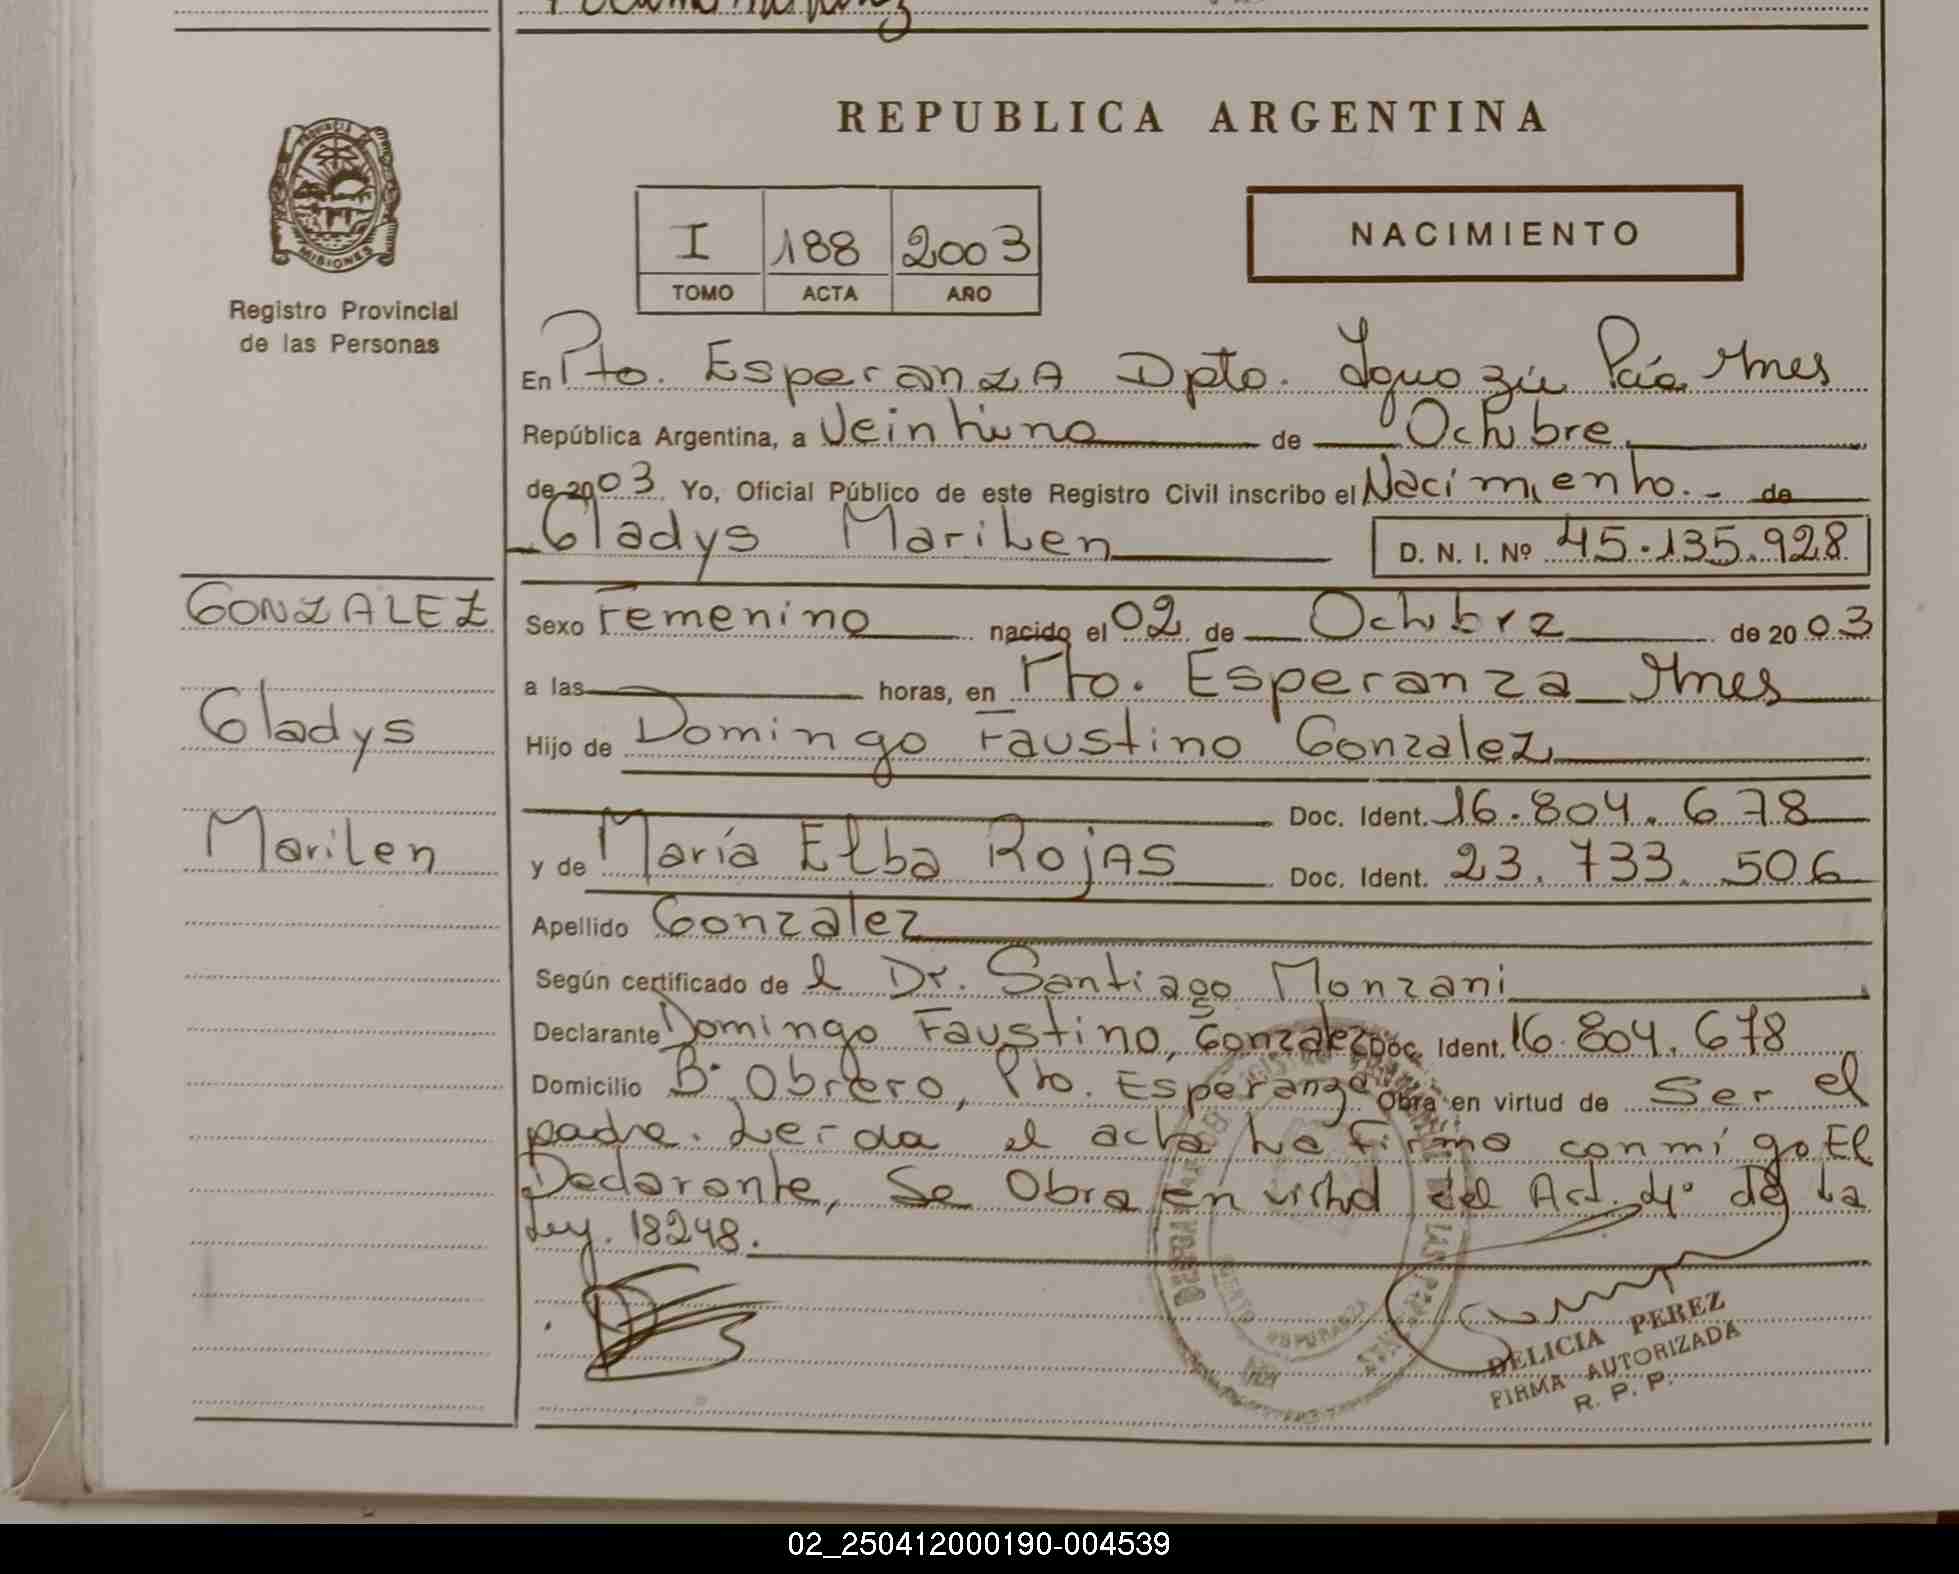 REPUBLICA ARGENTINA
PROVINCIA DE
MISIONES
Registro Provincial
de las Personas
I 188 2003
TOMO ACTA AÑO
NACIMIENTO
En Pto. Esperanza Dpto. Iguazú Pcia Mnes
República Argentina, a Veintiuno de Octubre
de 2003 Yo, Oficial Público de este Registro Civil inscribo el Nacimiento.- de
Gladys Marilen D. N. I. Nº 45.135.928
GONZALEZ
Gladys
Marilen
Sexo Femenino nacido el 02 de Octubre de 2003
a las horas, en Pto. Esperanza Mnes
Hijo de Domingo Faustino Gonzalez
Doc. Ident. 16.804.678
y de María Elba Rojas Doc. Ident. 23.733.506
Apellido Gonzalez
Según certificado de l Dr. Santiago Monzani
Declarante Domingo Faustino, Gonzalez Doc. Ident. 16.804.678
Domicilio Bº Obrero, Pto. Esperanza Obra en virtud de Ser el
padre. Leida el acta La Firma conmigo El
Declarante, Se Obra en virtud del Art. 4º de La
Ley. 18248.
DELICIA PEREZ
FIRMA AUTORIZADA
R. P. P.
02_250412000190-004539